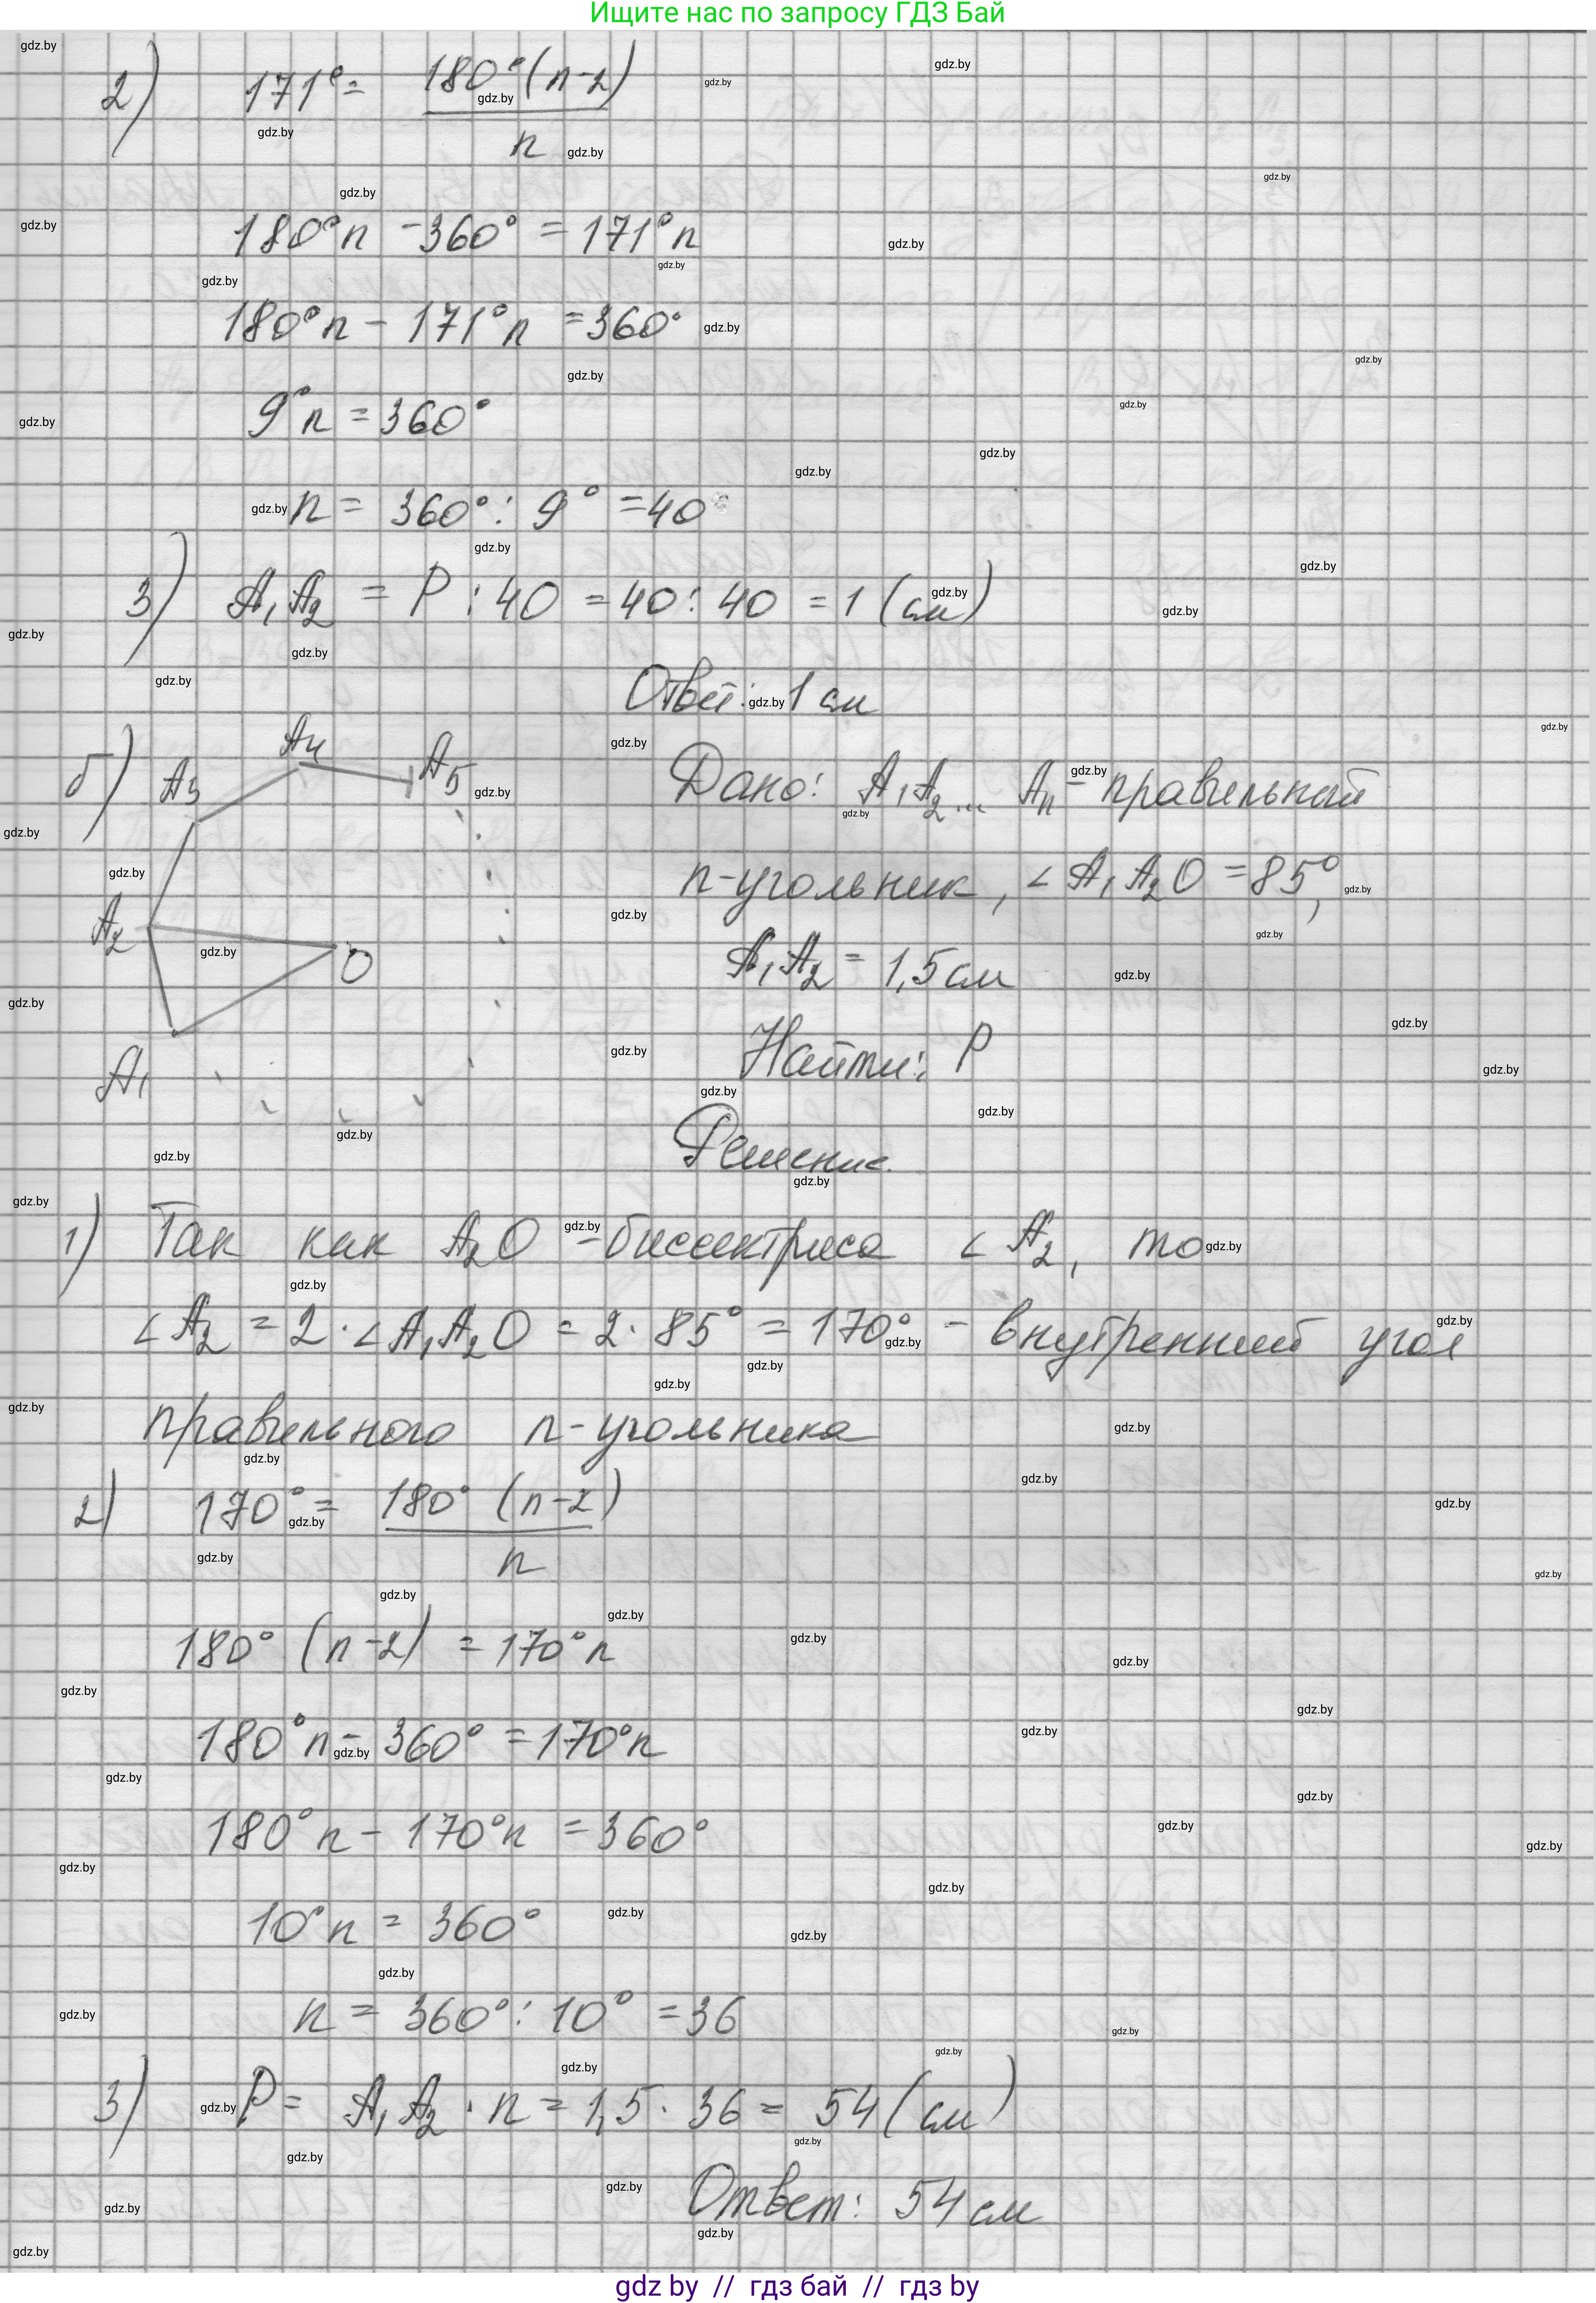 Ищите нас по запросу ГДЗ Бай
2) 171° = 180°(n-2)
n
180°n - 360° = 171°n
180°n - 171°n = 360°
9°n = 360°
n = 360° : 9° = 40
3) A₁A₂ = P : 40 = 40 : 40 = 1 (см)
Ответ: 1 см
б) A₃ A₄ A₅ Дано: A₁A₂... Aₙ - правильный
n-угольник, ∠A₁A₂O = 85°,
A₂ O A₁A₂ = 1,5 см
A₁ Найти: P
Решение.
1) Так как A₂O - биссектриса ∠A₂, то
∠A₂ = 2·∠A₁A₂O = 2·85° = 170° - внутренний угол
правильного n-угольника
2) 170° = 180° (n-2)
n
180° (n-2) = 170°n
180°n - 360° = 170°n
180°n - 170°n = 360°
10°n = 360°
n = 360° : 10° = 36
3) P = A₁A₂ · n = 1,5 · 36 = 54 (см)
Ответ: 54 см
gdz by // гдз бай // гдз by